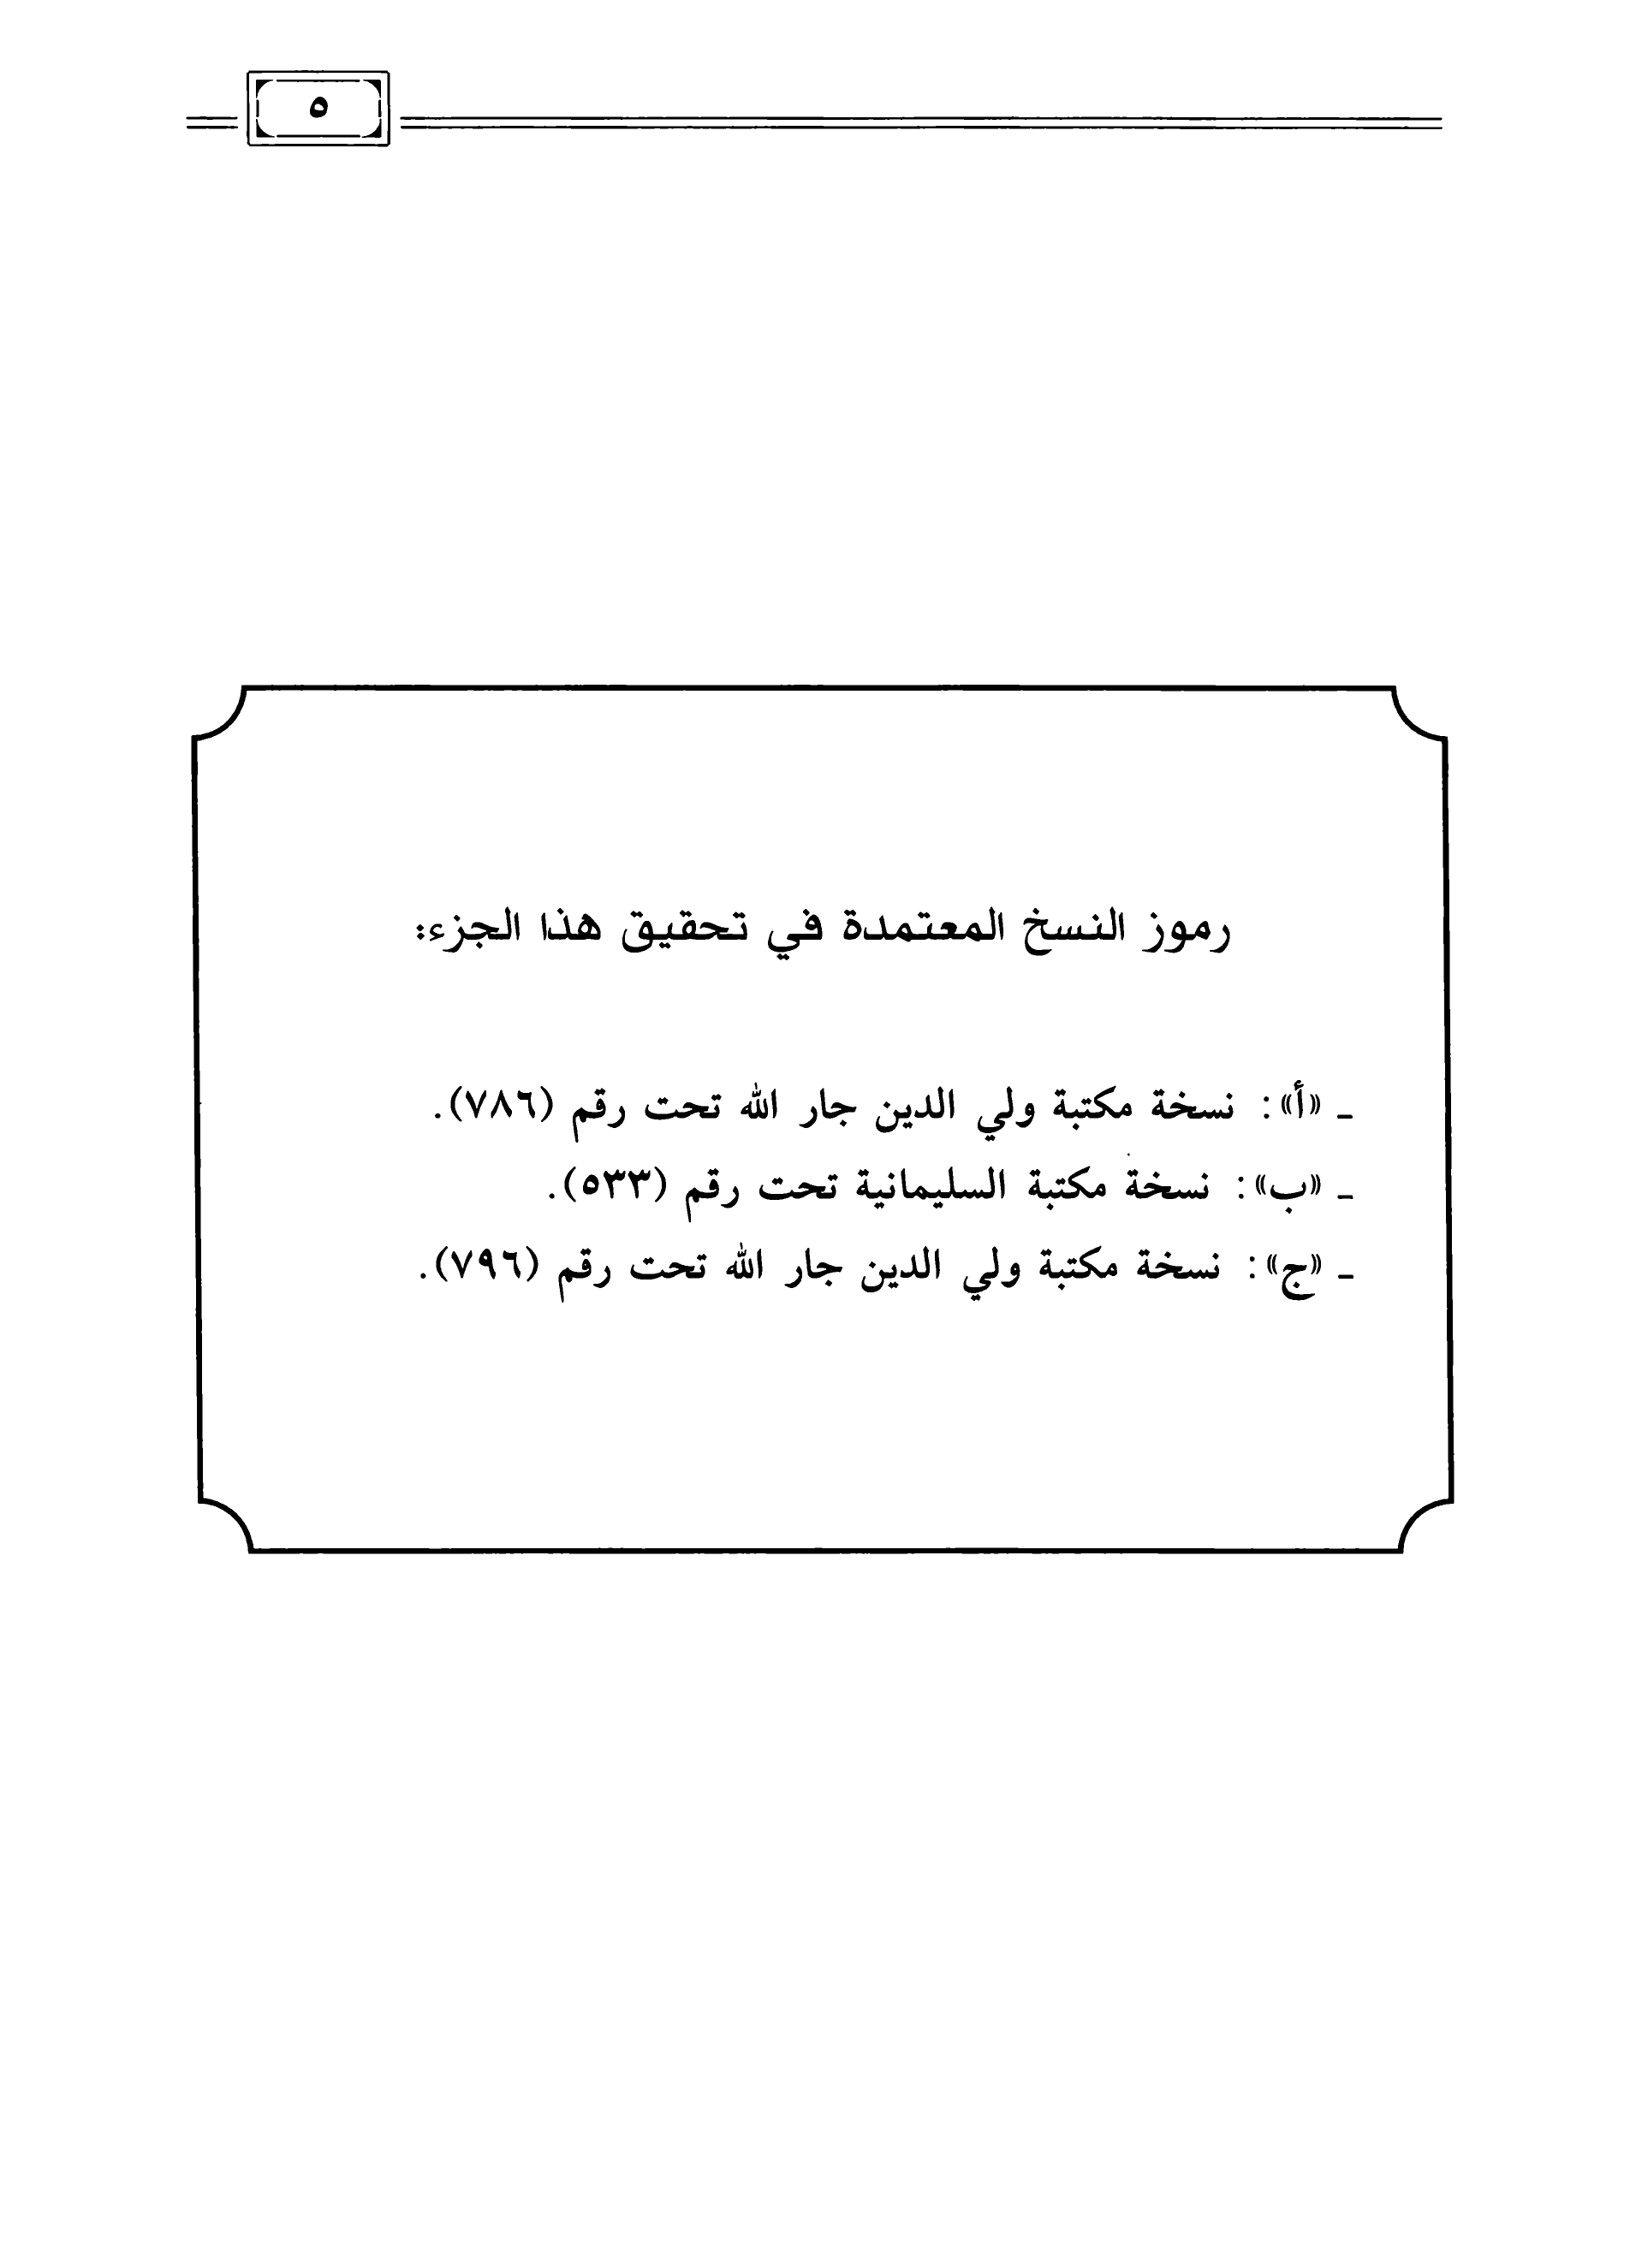 ٥
رموز النسخ المعتمدة في تحقيق هذا الجزء:
ـ «أ»: نسخة مكتبة ولي الدين جار الله تحت رقم (٧٨٦).
ـ «ب»: نسخة مكتبة السليمانية تحت رقم (٥٣٣).
ـ «ج»: نسخة مكتبة ولي الدين جار الله تحت رقم (٧٩٦).